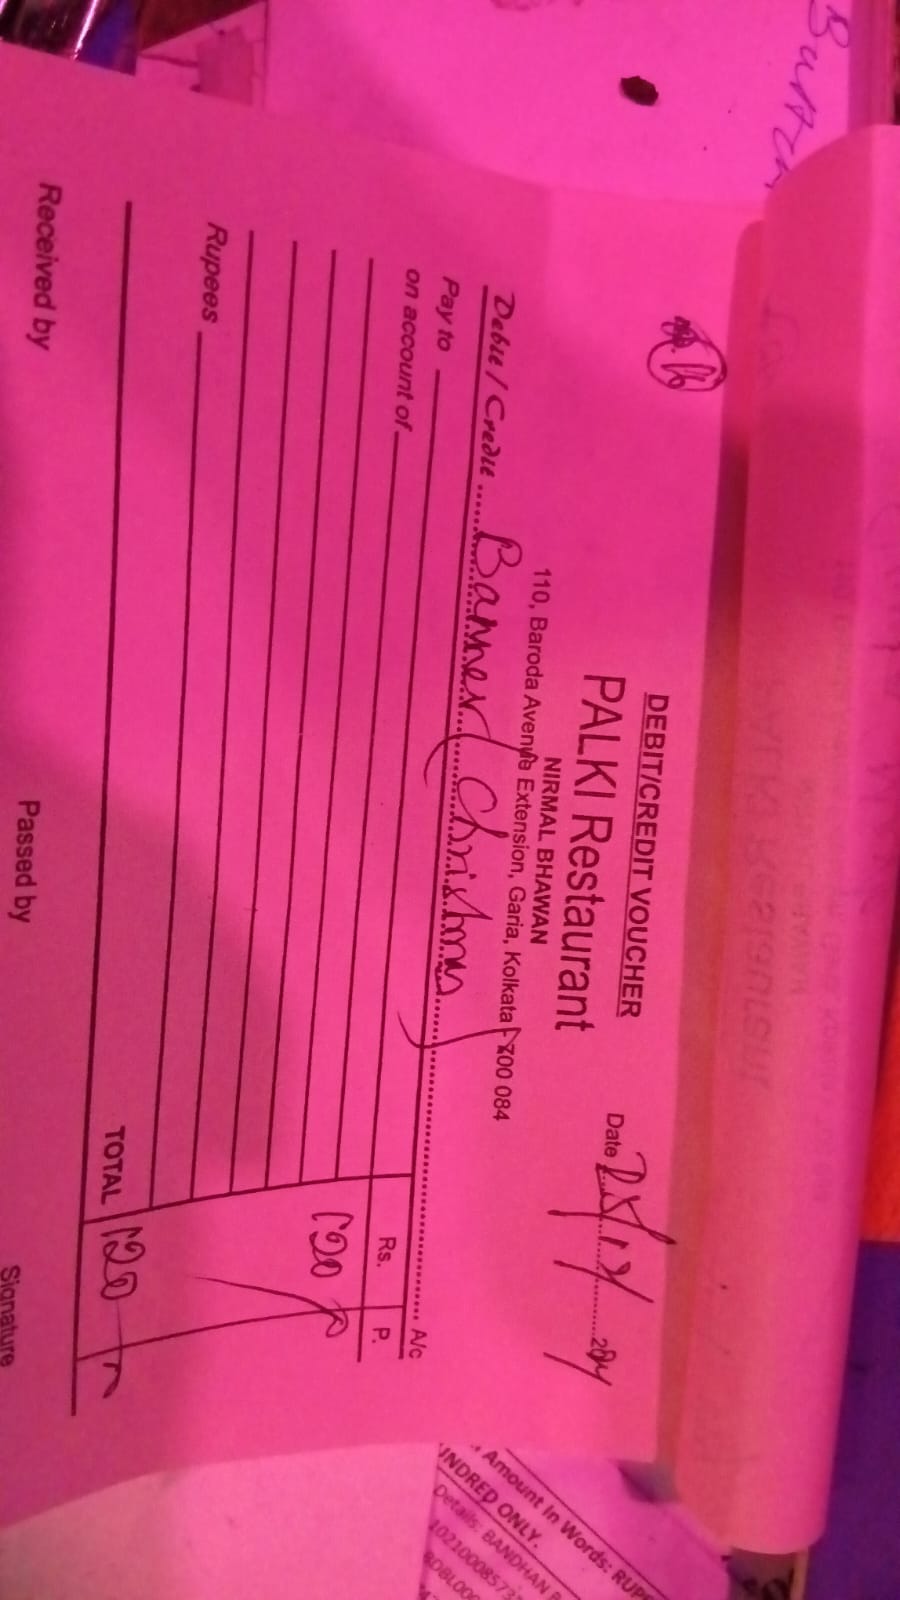 DEBIT/CREDIT VOUCHER
PALKI Restaurant
NIRMAL BHAWAN
110, Baroda Avenue Extension, Garia, Kolkata - 700 084
Date
Debit / Credit Banner Christmas A/c
Pay to
on account of
Rs. P.
120
Rupees
TOTAL 120
Received by Passed by Signature
Amount In Words: RUP
UNDRED ONLY.
Details: BANDHAN B